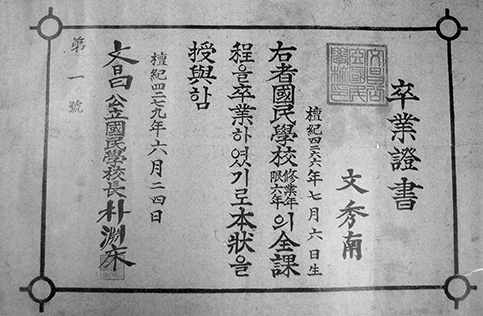 卒業證書
文秀南
檀紀四二六六年七月六日生
右者國民學校 修業年限六年 의全課
程을卒業하였기로本狀을
授與함
檀紀四二七九年六月二四日
文昌公立國民學校長 朴淵
第一號